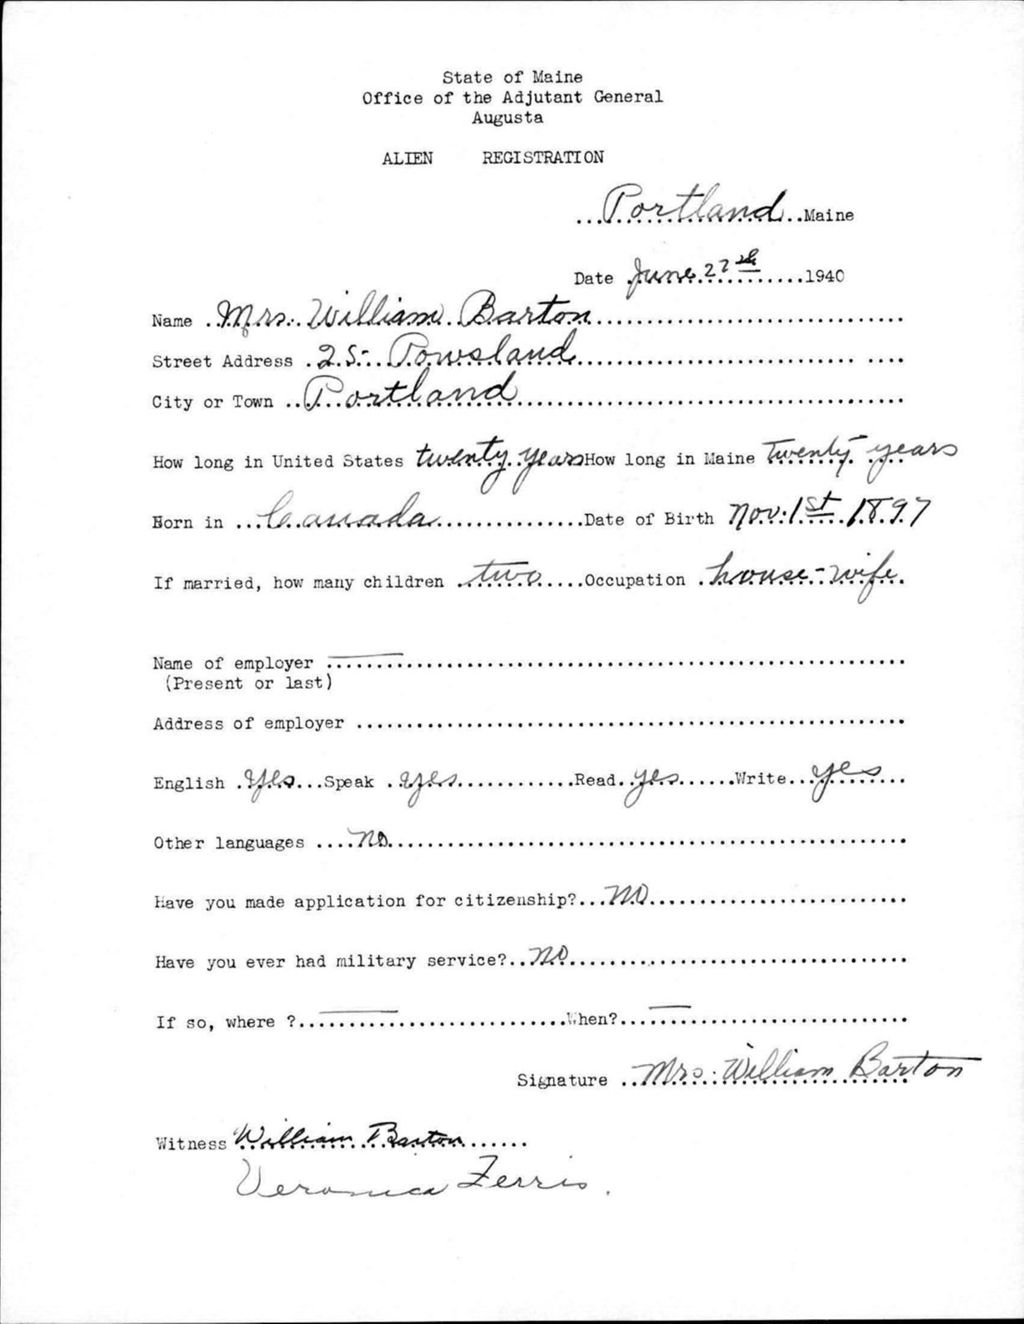 State of Maine
Office of the Adjutant General
Augusta
ALIEN REGISTRATION
...Portland..Maine
Date June 27th......1940
Name .Mrs. William Barton...............................
Street Address .25 Powsland............................... ....
City or Town ..Portland.......................................
How long in United States twenty years How long in Maine Twenty years
Born in ...Canada...............Date of Birth Nov. 1st 1897
If married, how many children .two.....Occupation .house-wife.
Name of employer ...............................................................
(Present or last)
Address of employer ........................................................
English .Yes...Speak .yes............Read.yes......Write..yes...
Other languages ....no....................................................
Have you made application for citizenship?...No..........................
Have you ever had military service?..no..................................
If so, where ?...........................When?.............................
Signature ..Mrs. William Barton
Witness William Barton......
Veronica Ferris.